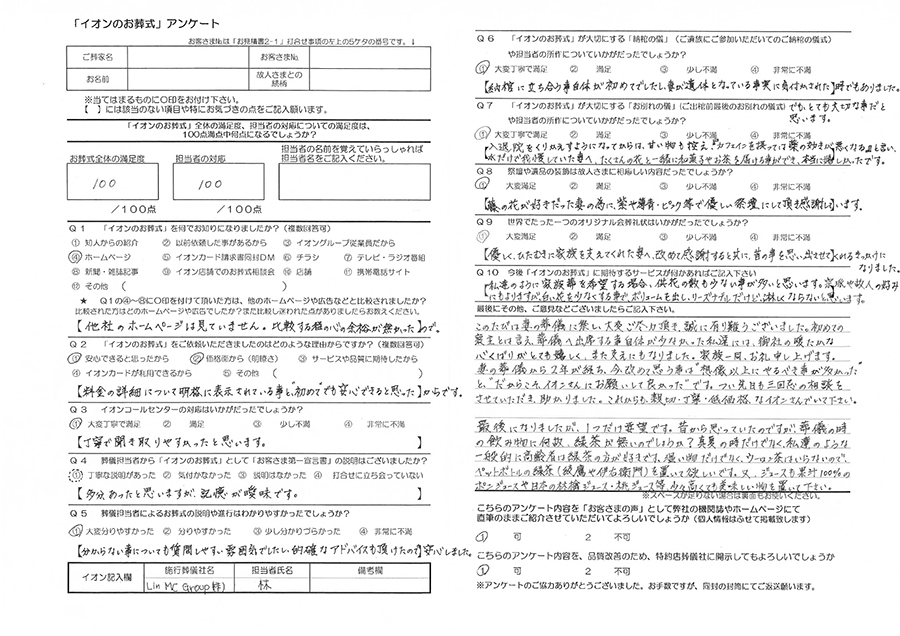 「イオンのお葬式」アンケート
お客さま№は「お見積書2-1」打合せ事項の左上の5ケタの番号です。↓
ご葬家名
お客さま№
お名前
故人さまとの続柄
※当てはまるものに○印をお付け下さい。
【　】には該当のない項目や特にお気づきの点をご記入願います。
「イオンのお葬式」全体の満足度、担当者の対応についての満足度は、
100点満点中何点になるでしょうか?
お葬式全体の満足度
担当者の対応
担当者の名前を覚えていらっしゃれば
担当者名をご記入ください。
100
100
/100点
/100点
Q1 「イオンのお葬式」を何でお知りになりましたか?(複数回答可)
① 知人からの紹介 ② 以前依頼した事があるから ③ イオングループ従業員だから
④ ホームページ ⑤ イオンカード請求書同封DM ⑥ チラシ ⑦ テレビ・ラジオ番組
⑧ 新聞・雑誌記事 ⑨ イオン店頭でのお葬式相談会 ⑩ 店舗 ⑪ 携帯電話サイト
⑫ その他 ( )
★ Q1の④~⑧に○印を付けて頂いた方は、他のホームページや広告などと比較されましたか?
比較された方はどのホームページや広告でしたか?また比較し迷われた点がありましたらお教えください。
【他社のホームページは見ていません。比較する程心の余裕が無かった】ので。
Q2 「イオンのお葬式」をご依頼いただきましたのはどのような理由からですか?(複数回答可)
① 安心できると思ったから ② 価格面から(明瞭さ) ③ サービスや品質に期待したから
④ イオンカードが利用できるから ⑤ その他 ( )
【料金の詳細について明格に表示されている事と、“初めてでも安心できると思った】からです。
Q3 イオンコールセンターの対応はいかがだったでしょうか?
① 大変丁寧で満足 ② 満足 ③ 少し不満 ④ 非常に不満
【丁寧で聞き取りやすかったと思います。】
Q4 葬儀担当者から「イオンのお葬式」として「お客さま第一宣言書」の説明はございましたか?
① 丁寧な説明があった ② 気付かなかった ③ 説明はなかった ④ 打合せに立ち会っていない
【多分あったと思いますが、記憶が曖昧です。】
Q5 葬儀担当者によるお葬式の説明や進行はわかりやすかったでしょうか?
① 大変分りやすかった ② 分りやすかった ③ 少し分かりづらかった ④ 非常に不満
【分からない事についても質問しやすい雰囲気でしたし、的確なアドバイスも頂けたので】安心しました。
イオン記入欄
施行葬儀社名
担当者氏名
備考欄
Lin MC Group㈱
林
Q6 「イオンのお葬式」が大切にする「納棺の儀」(ご遺族にご参加いただいてのご納棺の儀式)
や担当者の所作についていかがだったでしょうか?
① 大変丁寧で満足 ② 満足 ③ 少し不満 ④ 非常に不満
【納棺に立ち会う事自体が初めてでしたし、妻が遺体となっている事実に気付かされた】時でもありました。
でも、とても大切な事だと思います。
Q7 「イオンのお葬式」が大切にする「お別れの儀」(ご出棺前最後のお別れの儀式)
や担当者の所作についていかがだったでしょうか?
① 大変丁寧で満足 ② 満足 ③ 少し不満 ④ 非常に不満
【入退院をくりかえすようになってからは、甘い物も控え『カフェインを摂っては薬の効きが悪くなる』と言い、
水だけで我慢していた妻へ、たくさんの花と一緒に和菓子やお茶を届ける事ができ、本当に嬉しかったです。
Q8 祭壇や遺品の装飾は故人さまに相応しい内容だったでしょうか?
① 大変満足 ② 満足 ③ 少し不満 ④ 非常に不満
【藤の花が好きだった妻の為に、紫や薄青・ピンク等で優しい祭壇にして頂き感謝】しています。
Q9 世界でたった一つのオリジナル会葬礼状はいかがだったでしょうか?
① 大変満足 ② 満足 ③ 少し不満 ④ 非常に不満
【優しく、ひたむきに家族を支えてくれた妻へ、改めて感謝すると共に、昔の事を思い出させて】くれるきっかけになりました。
Q10 今後「イオンのお葬式」に期待するサービスが何かあればご記入下さい
【私達のように家族葬を希望する場合、供花の数も少ない事が多いと思います。宗派や故人の好み
にもよりますが、白い花を少なくする事で、ボリュームを出し、リーズナブルだけど、淋しくならないと思います。
最後にその他、ご意見などございましたらご記入下さい。
このたびは妻の葬儀に際し、大変ご尽力頂き、誠に有り難うございました。初めての
喪主とは言え、葬儀へ出席する事自体が少なかった私達には、御社の暖たかな
心くばりがとても嬉しく、また支えにもなりました。家族一同、お礼申し上げます。
妻の葬儀から2年が経ち、今改めて思う事は“想像以上にやるべき事が多かった”
と、“だからこそ、イオンさんにお願いして良かった”です。つい先日も三回忌の相談を
させていただき、助かりました。これからも、親切・丁寧・低価格、なイオンさんでいて下さい。
最後になりましたが、1つだけ要望です。昔から思っていたのですが、葬儀の時
の飲み物に何故、緑茶が無いのでしょうか?真夏の時だけでなく、私達のような
一般的に高齢者は緑茶の方が好きです。強い物だけでなく、ウーロン茶はいらないので、
ペットボトルの緑茶(綾鷹や伊右衛門)を置いて欲しいです。又、ジュースも果汁100%の
ポンジュースや日本の林檎ジュース・桃ジュース等、少々高くても美味しい物を置いて下さい。
※スペースが足りない場合は裏面もお使いください。
こちらのアンケート内容を「お客さまの声」として弊社の機関誌やホームページにて
直筆のままご紹介させていただいてよろしいでしょうか(個人情報はふせて掲載致します)
1 可 2 不可
こちらのアンケート内容を、品質改善のため、特約店葬儀社に開示してもよろしいでしょうか
1 可 2 不可
※アンケートのご協力ありがとうございました。お手数ですが、同封の封筒にてご返送願います。